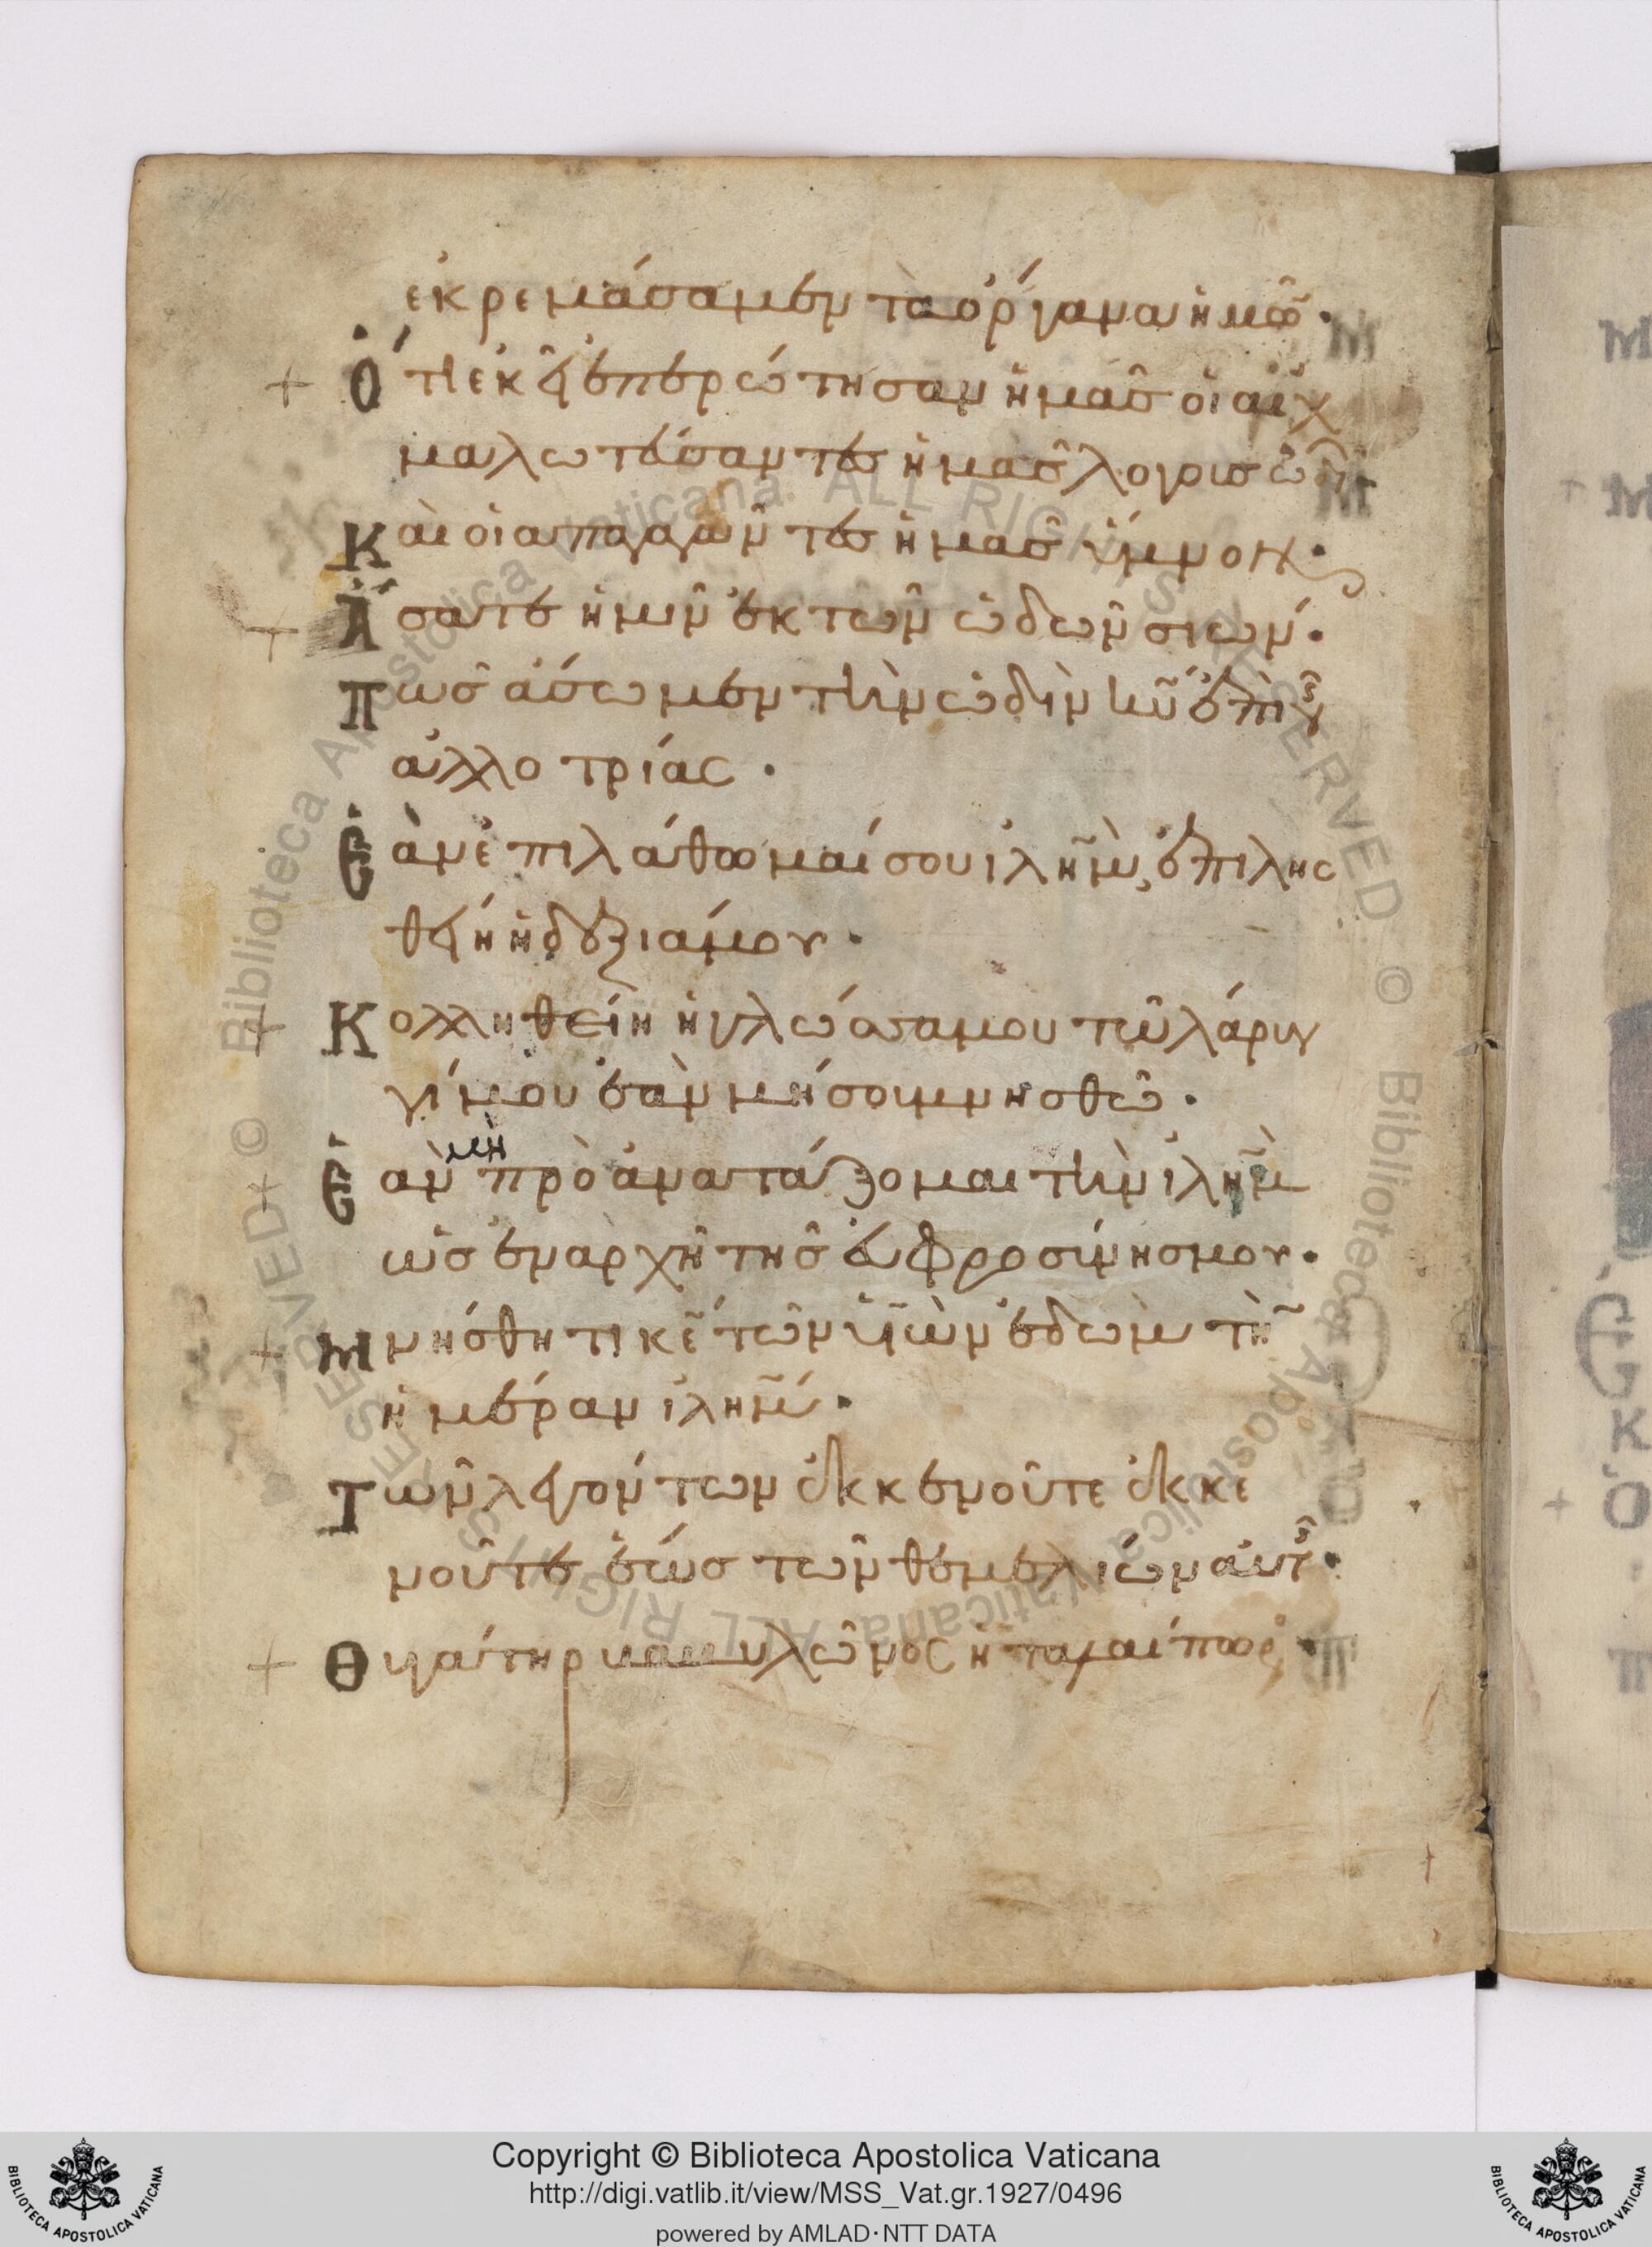 ἐκρεμάσαμεν τὰ ὄργανα ἡμῶ̃·
Ὅτι ἐκεῖ ἐπερώτησαν ἡμᾶς οἱ αἰχ
μαλωτεύσαντες ἡμᾶς λόγους ὠδῶ̃
Καὶ οἱ ἀπαγαγῶντες ἡμᾶς ὕμνον·
Ἄσατε ἡμῖν ἐκ τῶν ὠδῶν σιών·
Πῶς ἄσωμεν τὴν ὠδὴν κυ̃ ἐπὶ γῆς
ἀλλοτρίας·
Ἐὰν ἐπιλάθωμαί σου ιλη̃μ, ἐπιλησ
θείη ἡ δεξιά μου·
Κολληθείη ἡ γλῶσσα μου τῶ λάρυγ
γί μου ἐὰν μή σοι μνησθῶ·
Ἐὰν μὴ προανατάξομαι τὴν ιλη̃μ
ὡς ἐν ἀρχῆ τῆς εὐφροσύνης μου·
Μνήσθητι κε̃ τῶν υἱῶν ἐδὼμ τὴ̃
ἡμέραν ιλη̃μ·
Τῶν λεγόντων ἐκκενοῦτε ἐκκε
νοῦτε ἕως τῶν θεμελίων αὐτῆς·
Θυγάτηρ βαβυλῶνος ἡ ταλαίπωρος·
Copyright © Biblioteca Apostolica Vaticana
http://digi.vatlib.it/view/MSS_Vat.gr.1927/0496
powered by AMLAD·NTT DATA